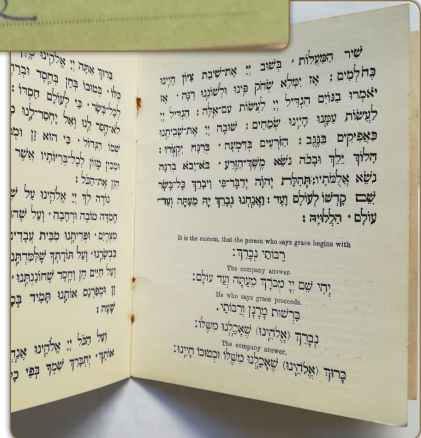 שִׁיר הַמַּעֲלוֹת. בְּשׁוּב יְיָ אֶת־שִׁיבַת צִיּוֹן הָיִינוּ
כְּחֹלְמִים: אָז יִמָּלֵא שְׂחֹק פִּינוּ וּלְשׁוֹנֵנוּ רִנָּה. אָז
יֹאמְרוּ בַגּוֹיִם הִגְדִּיל יְיָ לַעֲשׂוֹת עִם־אֵלֶּה: הִגְדִּיל יְיָ
לַעֲשׂוֹת עִמָּנוּ הָיִינוּ שְׂמֵחִים: שׁוּבָה יְיָ אֶת־שְׁבִיתֵנוּ
כַּאֲפִיקִים בַּנֶּגֶב: הַזֹּרְעִים בְּדִמְעָה. בְּרִנָּה יִקְצֹרוּ:
הָלוֹךְ יֵלֵךְ וּבָכֹה נֹשֵׂא מֶשֶׁךְ־הַזָּרַע. בֹּא־יָבֹא בְרִנָּה
נֹשֵׂא אֲלֻמֹּתָיו: תְּהִלַּת יְהוָֹה יְדַבֶּר־פִּי וִיבָרֵךְ כָּל־בָּשָׂר
שֵׁם קָדְשׁוֹ לְעוֹלָם וָעֶד: וַאֲנַחְנוּ נְבָרֵךְ יָהּ מֵעַתָּה וְעַד־
עוֹלָם. הַלְלוּיָהּ:
It is the custom, that the person who says grace begins with
רַבּוֹתַי נְבָרֵךְ:
The company answer.
יְהִי שֵׁם יְיָ מְבֹרָךְ מֵעַתָּה וְעַד עוֹלָם:
He who says grace proceeds.
בִּרְשׁוּת מָרָנָן וְרַבּוֹתַי.
נְבָרֵךְ (אֱלֹהֵינוּ) שֶׁאָכַלְנוּ מִשֶּׁלּוֹ:
The company answer.
בָּרוּךְ (אֱלֹהֵינוּ) שֶׁאָכַלְנוּ מִשֶּׁלּוֹ וּבְטוּבוֹ חָיִינוּ:
בָּרוּךְ אַתָּה יְיָ אֱלֹהֵינוּ
כֻּלּוֹ. בְּטוּבוֹ בְּחֵן בְּחֶסֶד
לְכָל־בָּשָׂר. כִּי לְעוֹלָם חַסְדּוֹ:
לֹא־חָסַר לָנוּ וְאַל יֶחְסַר־לָנוּ
שְׁמוֹ הַגָּדוֹל. כִּי הוּא זָן
וּמֵכִין מָזוֹן לְכָל־בְּרִיּוֹתָיו אֲשֶׁר
הַזָּן אֶת־הַכֹּל:
נוֹדֶה לְךָ יְיָ אֱלֹהֵינוּ עַל
חֶמְדָּה טוֹבָה וּרְחָבָה. וְעַל
מִצְרַיִם. וּפְדִיתָנוּ מִבֵּית עֲבָדִים
בִּבְשָׂרֵנוּ. וְעַל תּוֹרָתְךָ שֶׁלִּמַּדְתָּנוּ
וְעַל חַיִּים חֵן וָחֶסֶד שֶׁחוֹנַנְתָּנוּ.
זָן וּמְפַרְנֵס אוֹתָנוּ תָּמִיד
שָׁעָה:
וְעַל הַכֹּל יְיָ אֱלֹהֵינוּ
אוֹתָךְ. יִתְבָּרַךְ שִׁמְךָ בְּפִי